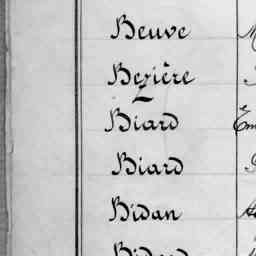 Beuve
Bezière
Biard Em
Biard
Bidan